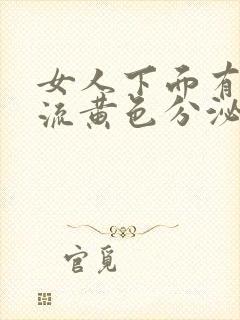 女人下面有
流黄色分泌
官觅